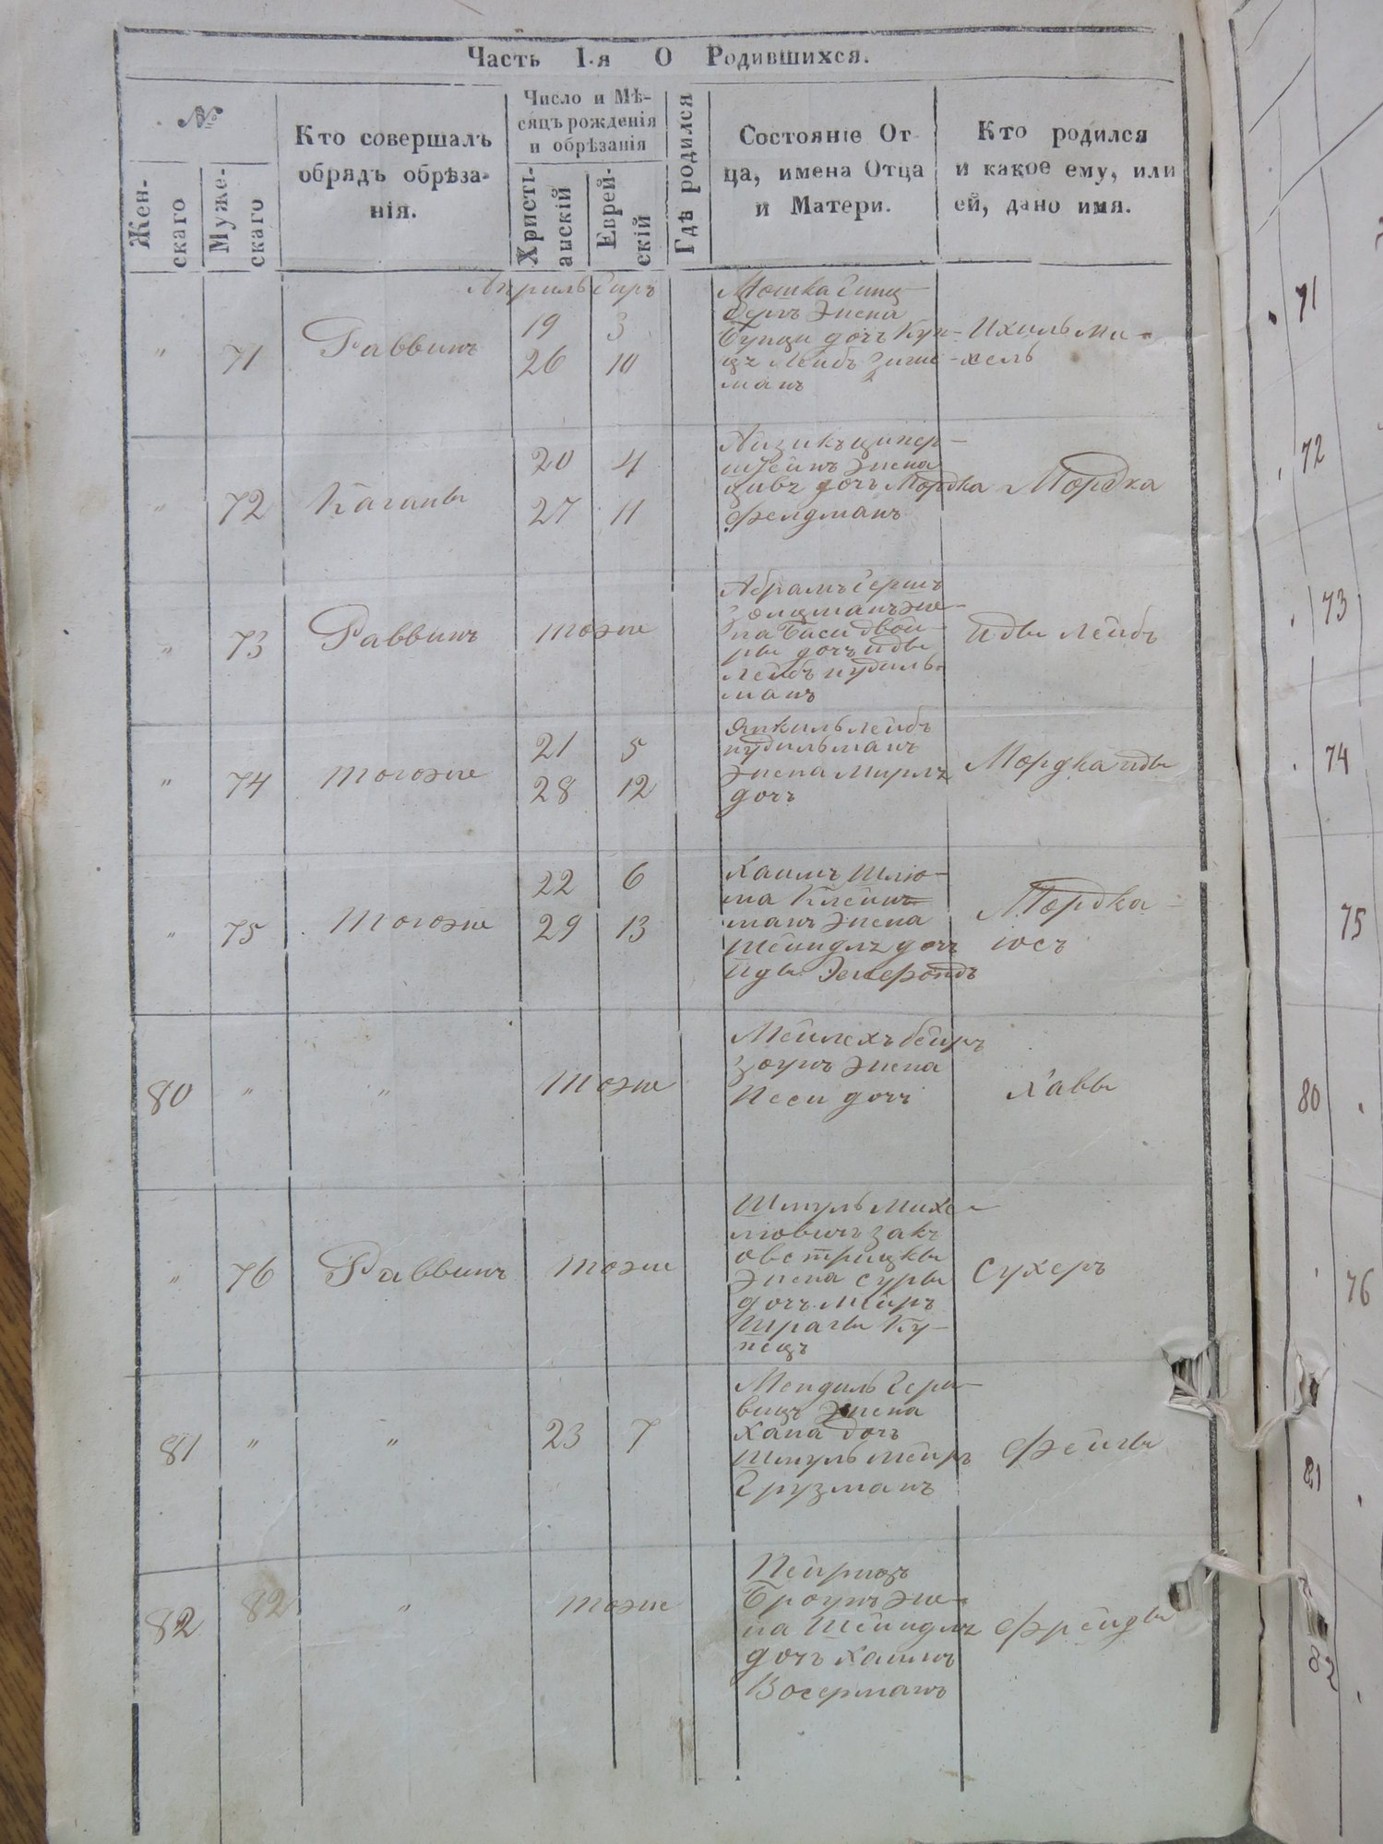 Часть 1-я О Родившихся.
№
Жен-
скаго
Муже-
скаго
Кто совершалъ
обрядъ обрѣза-
нія.
Число и Мѣ-
сяцъ рожденія
и обрѣзанія
Христі-
анскій
Еврей-
скій
Гдѣ родился
Состояніе От
ца, имена Отца
и Матери.
Кто родился
и какое ему, или
ей, дано имя.
Априль Іиръ
" 71 Раввинъ
19 3
26 10
Мошка
жена
дочь
Лейбъ
манъ
Ихиль Ми-
хель
" 72
20 4
27 11
Айзикъ Ципер-
штейнъ жена
Цивъ дочь Мордка
Фелдманъ
Мордка
" 73 Раввинъ тоже
Абрамъ Герш
жена Баси Двой-
ры дочь Иды
Лейбъ Нудиль-
манъ
Иды Лейбъ
" 74 тогоже
21 5
28 12
Янкиль Лейбъ
Нудильманъ
жена Мирлъ
дочь
Мордка Иды
" 75 тогоже
22 6
29 13
Хаимъ Шлю-
ма Клейн
манъ жена
Шейндлъ дочь
Иды
Мордка
Іосъ
80 " " тоже
Мейлехъ Бейръ
зонъ жена
Песи дочь
Хавы
" 76 Раввинъ тоже
Шмуль Михе-
лювичъ Закъ
Овстрицкы
жена Суры
дочь Мейръ
Шрагы Ку-
пецъ
Сухеръ
81 " "
23 7
Мендиль Герш-
вицъ жена
Хана дочь
Шмуль Мейръ
Грузманъ
Фейгы
82 82 " тоже
Броунъ же-
на Шейндлъ
дочь Хаимъ
Восерманъ
Фрейды
71
72
73
74
75
80
76
81
82